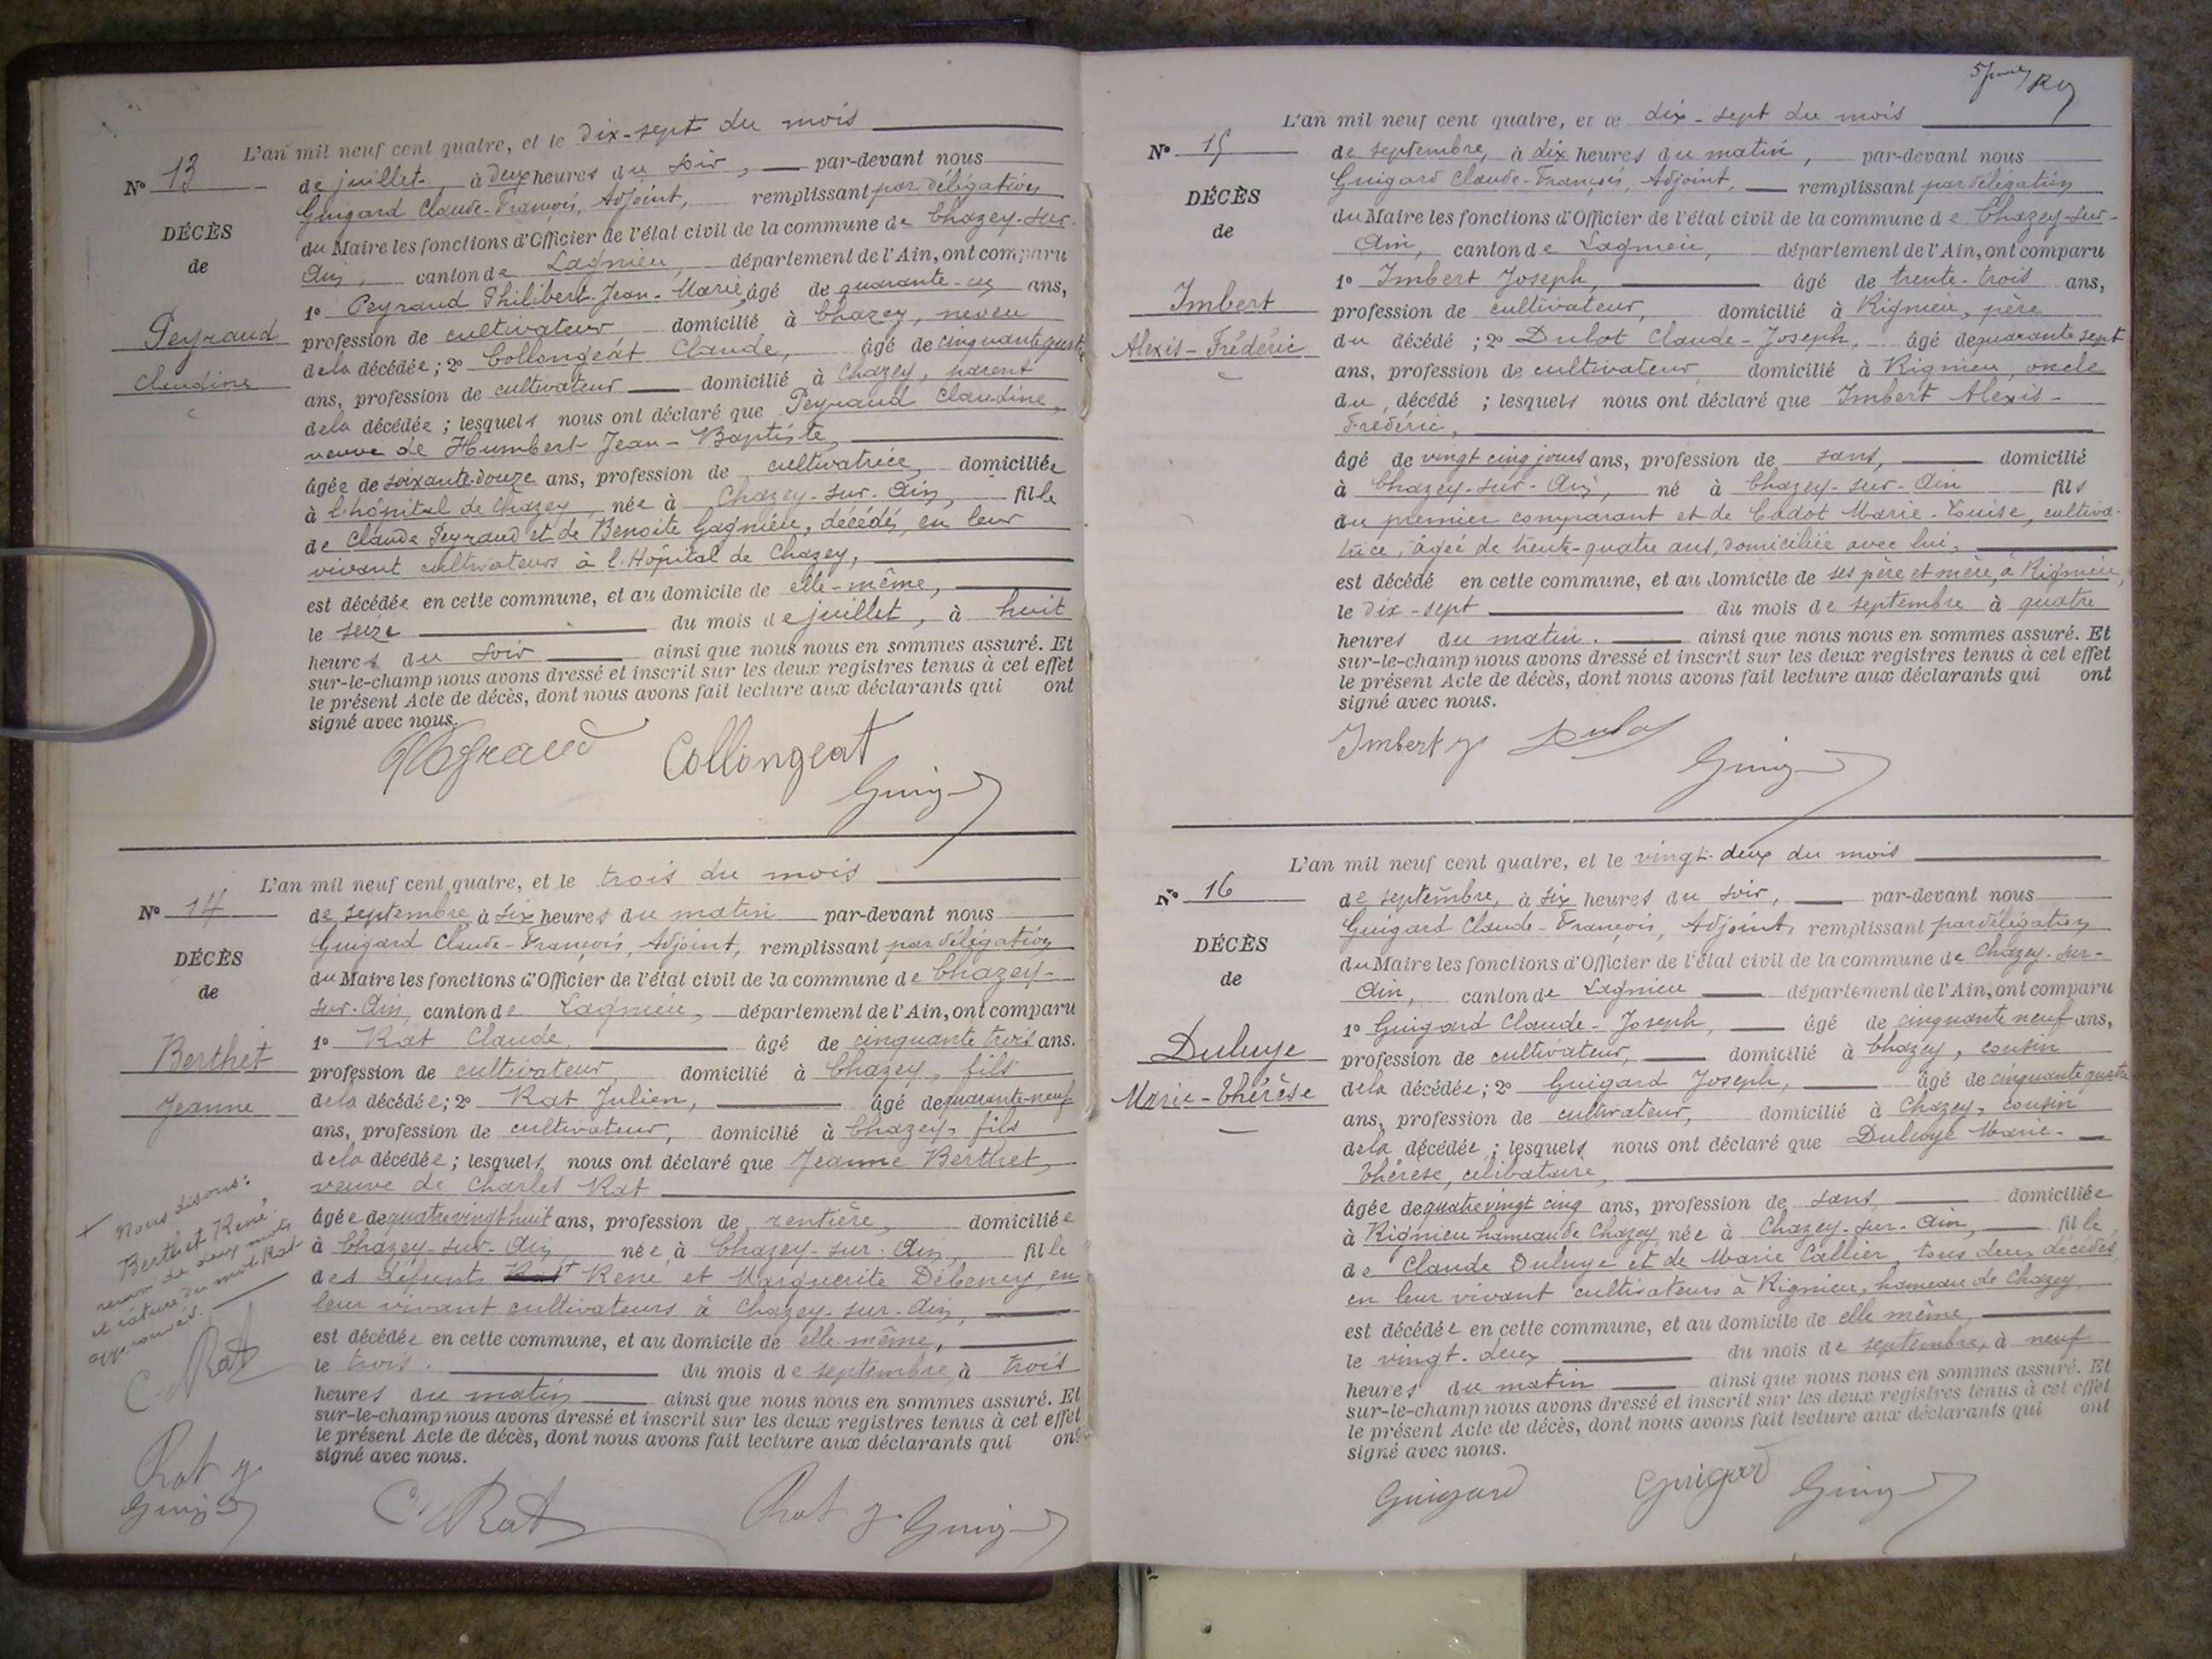 L'an mil neuf cent quatre, et le dix-sept du mois
N° 13
de juillet, à deux heures du soir, par-devant nous
DÉCÈS
de
Peyraud
Claudine
Guigard Claude-François, Adjoint, remplissant par délégation
du Maire les fonctions d'Officier de l'état civil de la commune de Chazey-sur-
Ain, canton de Lagnieu, département de l'Ain, ont comparu
1° Peyraud Philibert-Jean-Marie, âgé de quarante-un ans,
profession de cultivateur domicilié à Chazey, neveu
de la décédée; 2° Collongeat Claude, âgé de cinquante quatre
ans, profession de cultivateur domicilié à Chazey, parent
de la décédée; lesquels nous ont déclaré que Peyraud Claudine,
veuve de Humbert Jean-Baptiste,
âgée de soixante-douze ans, profession de cultivatrice, domiciliée
à l'hôpital de Chazey, née à Chazey-sur-Ain, fille
de Claude Peyraud et de Benoite Gagnieu, décédés, en leur
vivant cultivateurs à l'Hôpital de Chazey,
est décédée en cette commune, et au domicile de elle-même,
le seize du mois de juillet, à huit
heures du soir ainsi que nous nous en sommes assuré. Et
sur-le-champ nous avons dressé et inscrit sur les deux registres tenus à cet effet
le présent Acte de décès, dont nous avons fait lecture aux déclarants qui ont
signé avec nous.
Collongeat
L'an mil neuf cent quatre, et le trois du mois
N° 14
de septembre à six heures du matin par-devant nous
DÉCÈS
de
Berthet
Jeanne
Guigard Claude-François, Adjoint, remplissant par délégation
du Maire les fonctions d'Officier de l'état civil de la commune de Chazey-
sur-Ain, canton de Lagnieu, département de l'Ain, ont comparu
1° Rat Claude, âgé de cinquante trois ans.
profession de cultivateur, domicilié à Chazey, fils
de la décédée; 2° Rat Julien, âgé de quarante-neuf
ans, profession de cultivateur, domicilié à Chazey, fils
de la décédée; lesquels nous ont déclaré que Jeanne Berthet,
veuve de Charles Rat
âgée de quatre vingt huit ans, profession de rentière, domiciliée
à Chazey-sur-Ain, née à Chazey-sur-Ain, fille
des défunts Rat + René et Marguerite Débeney, en
leur vivant cultivateurs à Chazey-sur-Ain,
est décédée en cette commune, et au domicile de elle même,
le trois du mois de septembre à trois
heures du matin ainsi que nous nous en sommes assuré. Et
sur-le-champ nous avons dressé et inscrit sur les deux registres tenus à cet effet
le présent Acte de décès, dont nous avons fait lecture aux déclarants qui ont
signé avec nous.
+ Nous disons:
Berthet René,
renvoi de deux mots
et rature du mot Rat
approuvés.
C. Rat
Rat J.
Guig
C. Rat
Rat J. Guig
5 Ry
L'an mil neuf cent quatre, et le dix-sept du mois
N° 15
de septembre, à dix heures du matin, par-devant nous
DÉCÈS
de
Imbert
Alexis-Frédéric
Guigard Claude-François, Adjoint, remplissant par délégation
du Maire les fonctions d'Officier de l'état civil de la commune de Chazey-sur-
Ain, canton de Lagnieu, département de l'Ain, ont comparu
1° Imbert Joseph, âgé de trente-trois ans,
profession de cultivateur, domicilié à Rignieu, père
du décédé; 2° Dulot Claude-Joseph, âgé de quarante sept
ans, profession de cultivateur, domicilié à Rignieu, oncle
du décédé; lesquels nous ont déclaré que Imbert Alexis-
Frédéric,
âgé de vingt cinq jours ans, profession de sans, domicilié
à Chazey-sur-Ain, né à Chazey-sur-Ain fils
du premier comparant et de Cadot Marie-Louise, cultiva-
trice, âgée de trente-quatre ans, domiciliée avec lui,
est décédé en cette commune, et au domicile de ses père et mère, à Rignieu,
le dix-sept du mois de septembre à quatre
heures du matin. ainsi que nous nous en sommes assuré. Et
sur-le-champ nous avons dressé et inscrit sur les deux registres tenus à cet effet
le présent Acte de décès, dont nous avons fait lecture aux déclarants qui ont
signé avec nous.
Imbert J Dulot
Guig
L'an mil neuf cent quatre, et le vingt-deux du mois
N° 16
de septembre, à six heures du soir, par-devant nous
DÉCÈS
de
Duluye
Marie-Thérèse
Guigard Claude-François, Adjoint, remplissant par délégation
du Maire les fonctions d'Officier de l'état civil de la commune de Chazey-sur-
Ain, canton de Lagnieu département de l'Ain, ont comparu
1° Guigard Claude-Joseph, âgé de cinquante neuf ans,
profession de cultivateur, domicilié à Chazey, cousin
de la décédée; 2° Guigard Joseph, âgé de cinquante quatre
ans, profession de cultivateur, domicilié à Chazey, cousin
de la décédée; lesquels nous ont déclaré que Duluye Marie-
Thérèse, célibataire,
âgée de quatre vingt cinq ans, profession de sans, domiciliée
à Rignieu hameau de Chazey née à Chazey-sur-Ain, fille
de Claude Duluye et de Marie Callier, tous deux décédés,
en leur vivant cultivateurs à Rignieu, hameau de Chazey,
est décédée en cette commune, et au domicile de elle même,
le vingt-deux du mois de septembre, à neuf
heures du matin ainsi que nous nous en sommes assuré. Et
sur-le-champ nous avons dressé et inscrit sur les deux registres tenus à cet effet
le présent Acte de décès, dont nous avons fait lecture aux déclarants qui ont
signé avec nous.
Guigard Guigard Guig